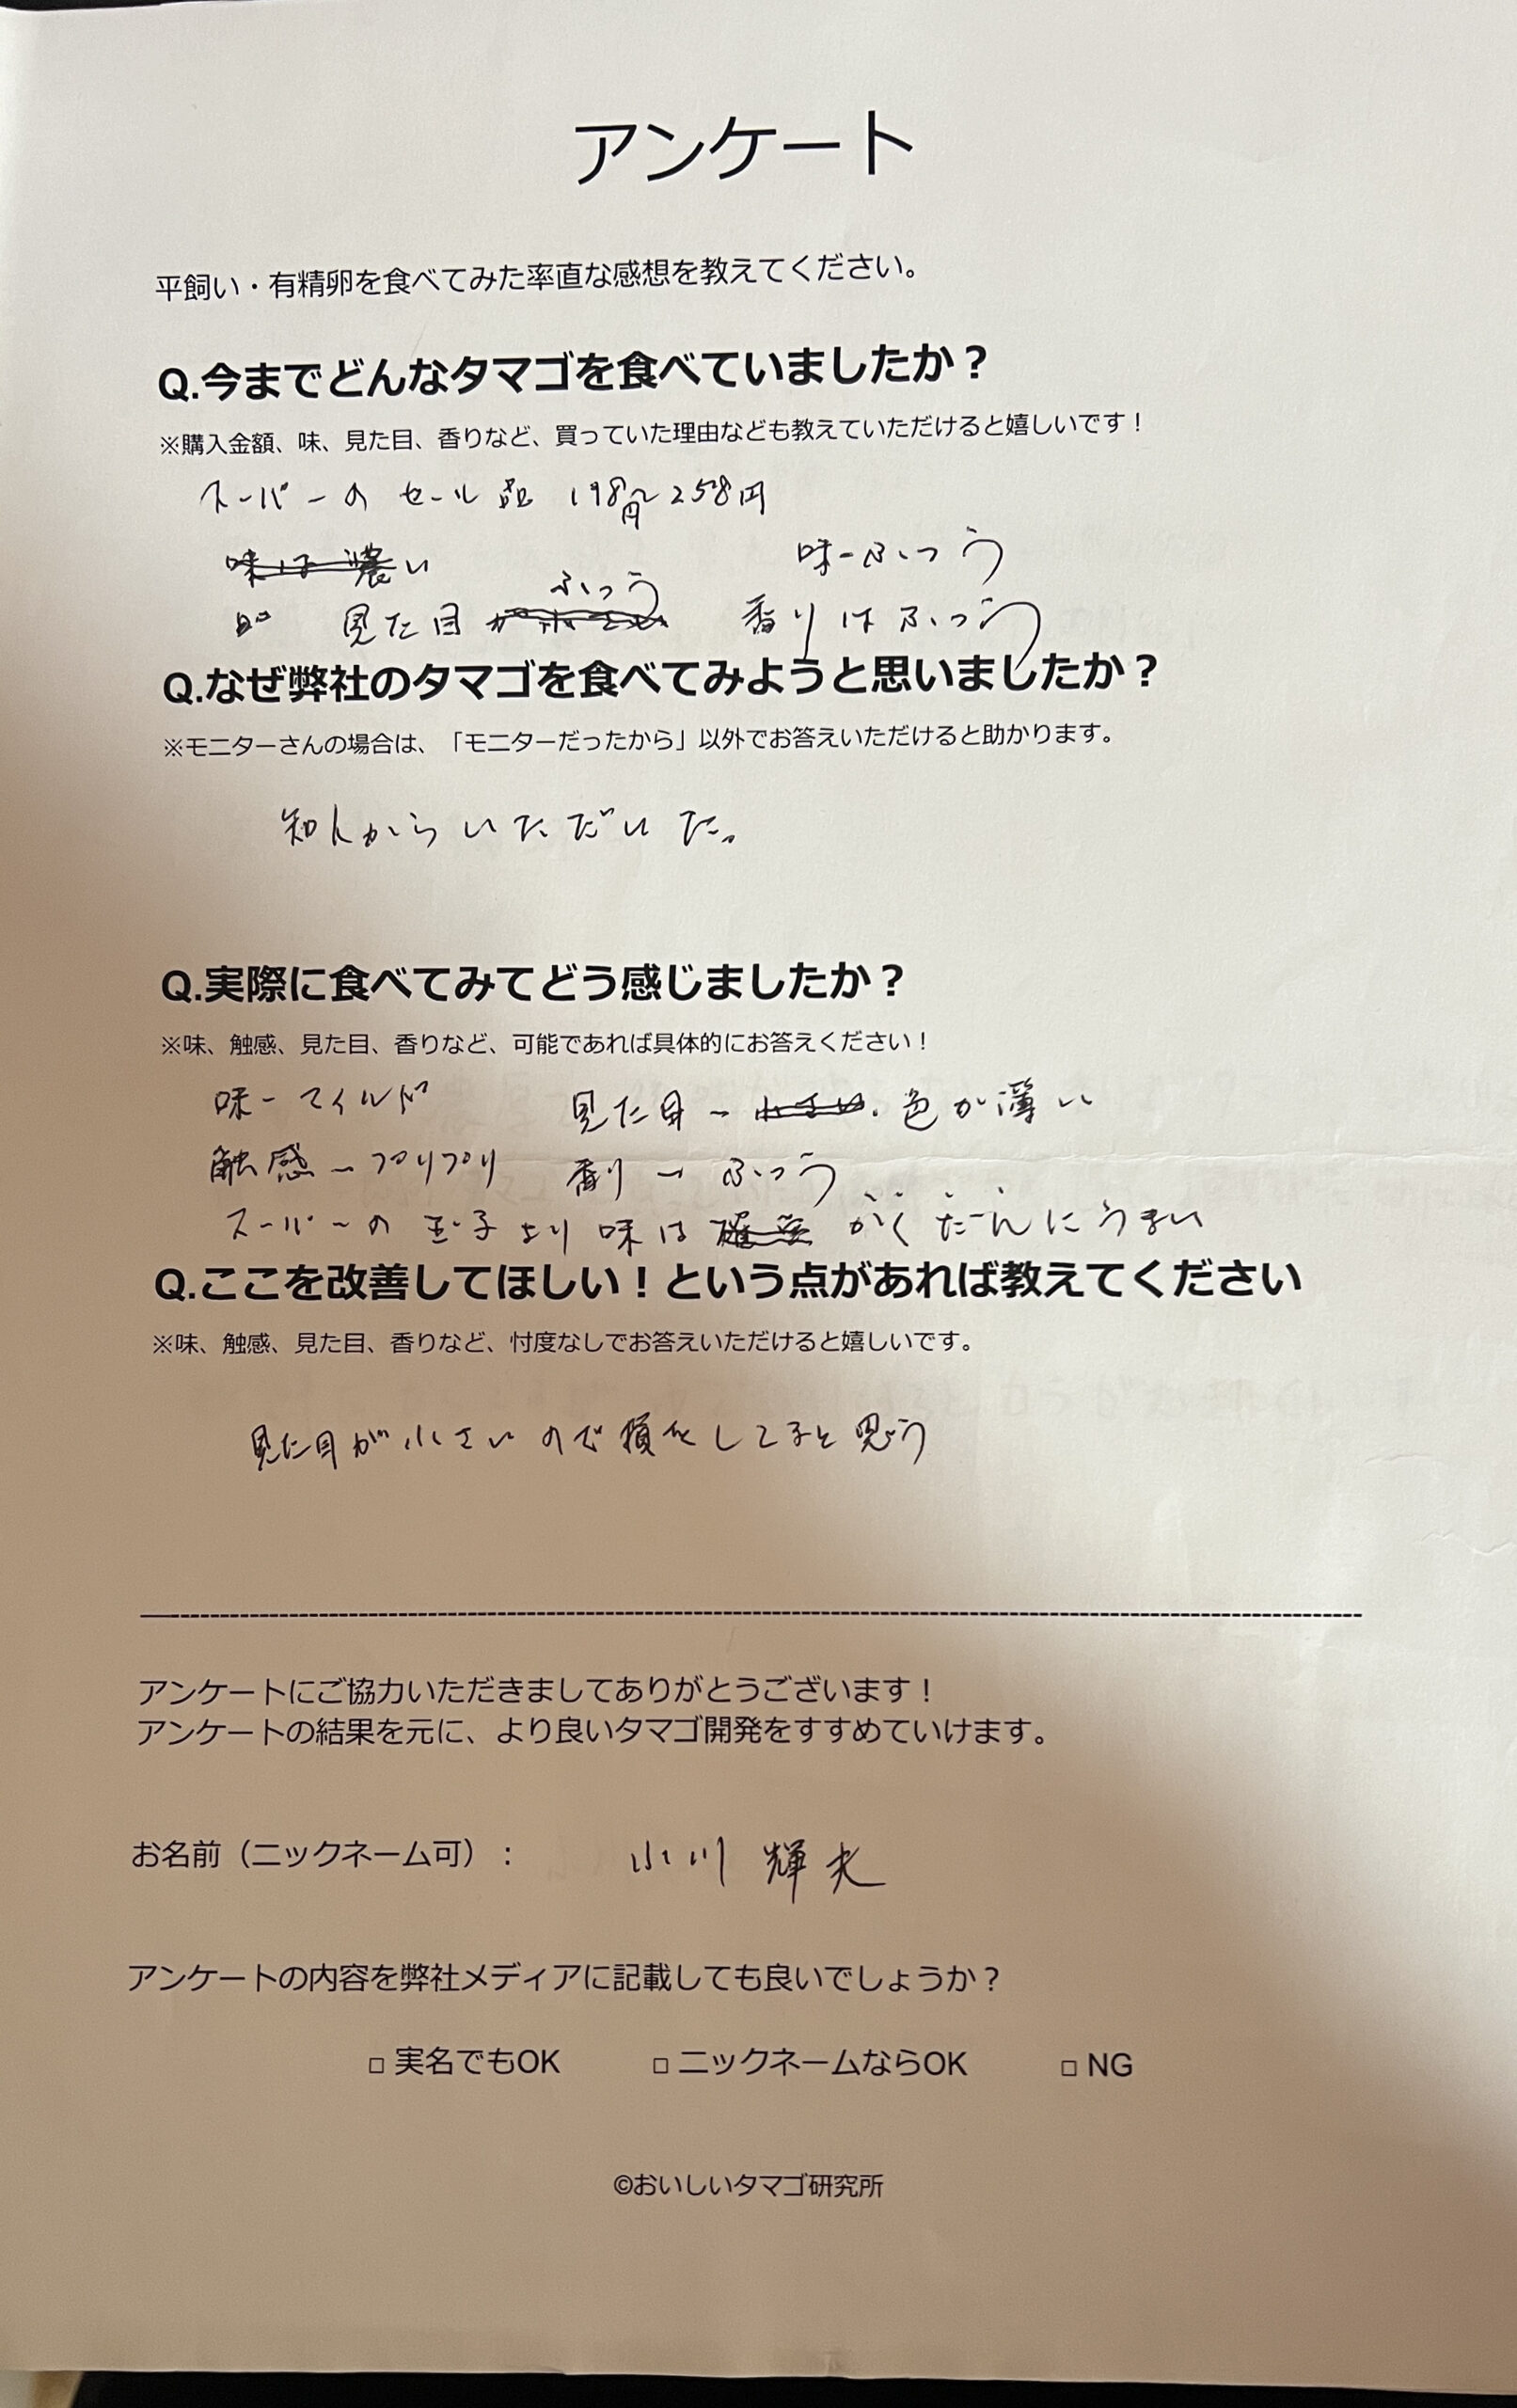 アンケート
平飼い・有精卵を食べてみた率直な感想を教えてください。
Q.今までどんなタマゴを食べていましたか？
※購入金額、味、見た目、香りなど、買っていた理由なども教えていただけると嬉しいです！
スーパーのセール品 198円〜258円
味は濃い 味-ふつう
見た目 ふつう 香りはふつう
Q.なぜ弊社のタマゴを食べてみようと思いましたか？
※モニターさんの場合は、「モニターだったから」以外でお答えいただけると助かります。
知人からいただいた。
Q.実際に食べてみてどう感じましたか？
※味、触感、見た目、香りなど、可能であれば具体的にお答えください！
味-マイルド 見た目-小さい.色が薄い
触感-プリプリ 香り-ふつう
スーパーの玉子より味は がくだんにうまい
Q.ここを改善してほしい！という点があれば教えてください
※味、触感、見た目、香りなど、忖度なしでお答えいただけると嬉しいです。
見た目が小さいので損をしてると思う
アンケートにご協力いただきましてありがとうございます！
アンケートの結果を元に、より良いタマゴ開発をすすめていけます。
お名前（ニックネーム可）： 小川 輝夫
アンケートの内容を弊社メディアに記載しても良いでしょうか？
□ 実名でもOK □ ニックネームならOK □ NG
©おいしいタマゴ研究所